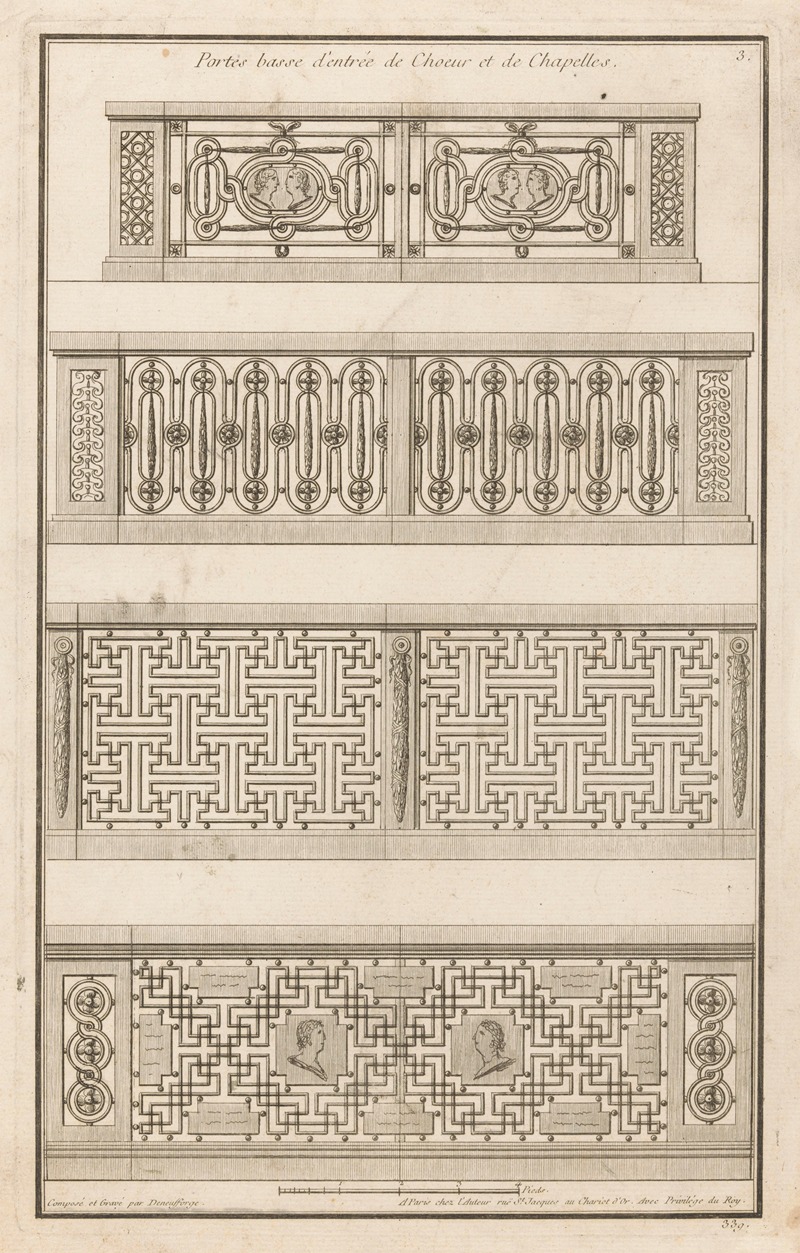 Portes basse d'entrée de Choeur et de Chapelles.
3.
Pieds.
Composé et Gravé par Deneufforge.
A Paris chez l'Auteur rue St. Jacques au Chariot d'Or. Avec Privilége du Roy.
339.